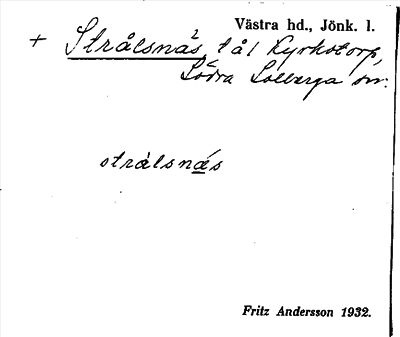 Västra hd., Jönk. l.
+ Strålsnäs, t ål Kyrkotorp,
Södra Solberga sn.
strålsnä́s
Fritz Andersson 1932.